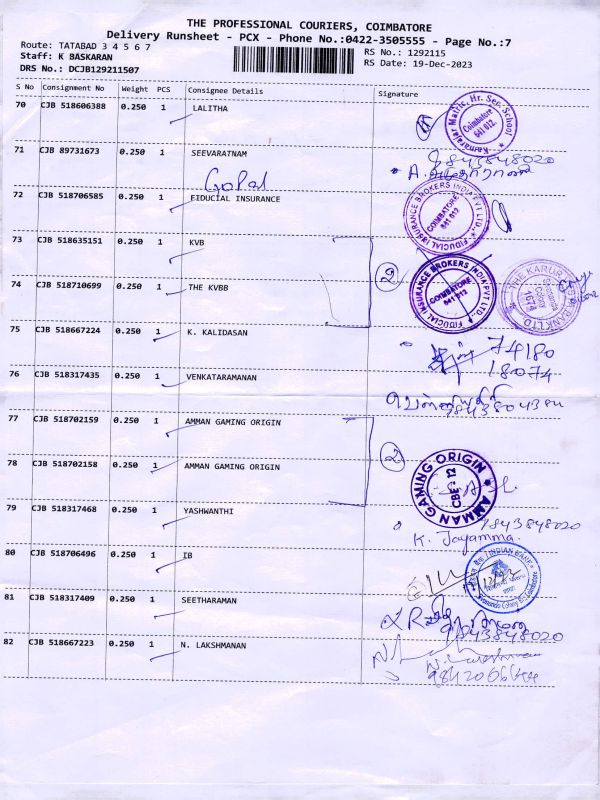 THE PROFESSIONAL COURIERS, COIMBATORE
Delivery Runsheet - PCX - Phone No.:0422-3505555 - Page No.:7
Route: TATABAD 3 4 5 6 7
RS No.: 1292115
Staff: K BASKARAN
RS Date: 19-Dec-2023
DRS No.: DCJB129211507
S No Consignment No Weight PCS Consignee Details Signature
70 CJB 518606388 0.250 1 LALITHA
Kamarajar Matric. Hr. Sec. School Coimbatore 641 012.
71 CJB 89731673 0.250 1 SEEVARATNAM
9843848020
Gopal
72 CJB 518706585 0.250 1 FIDUCIAL INSURANCE
FIDUCIAL INSURANCE BROKERS INDIA PVT LTD., COIMBATORE 641 012
73 CJB 518635151 0.250 1 KVB
2
FIDUCIAL INSURANCE BROKERS INDIA PVT LTD., COIMBATORE 641 012
74 CJB 518710699 0.250 1 THE KVBB
75 CJB 518667224 0.250 1 K. KALIDASAN
74180
18074
76 CJB 518317435 0.250 1 VENKATARAMANAN
77 CJB 518702159 0.250 1 AMMAN GAMING ORIGIN
2
AMMAN GAMING ORIGIN CBE - 12
78 CJB 518702158 0.250 1 AMMAN GAMING ORIGIN
79 CJB 518317468 0.250 1 YASHWANTHI
9843848020
K. Jayamma.
80 CJB 518706496 0.250 1 IB
INDIAN BANK
81 CJB 518317409 0.250 1 SEETHARAMAN
9843848020
82 CJB 518667223 0.250 1 N. LAKSHMANAN
N. Lakshmanan